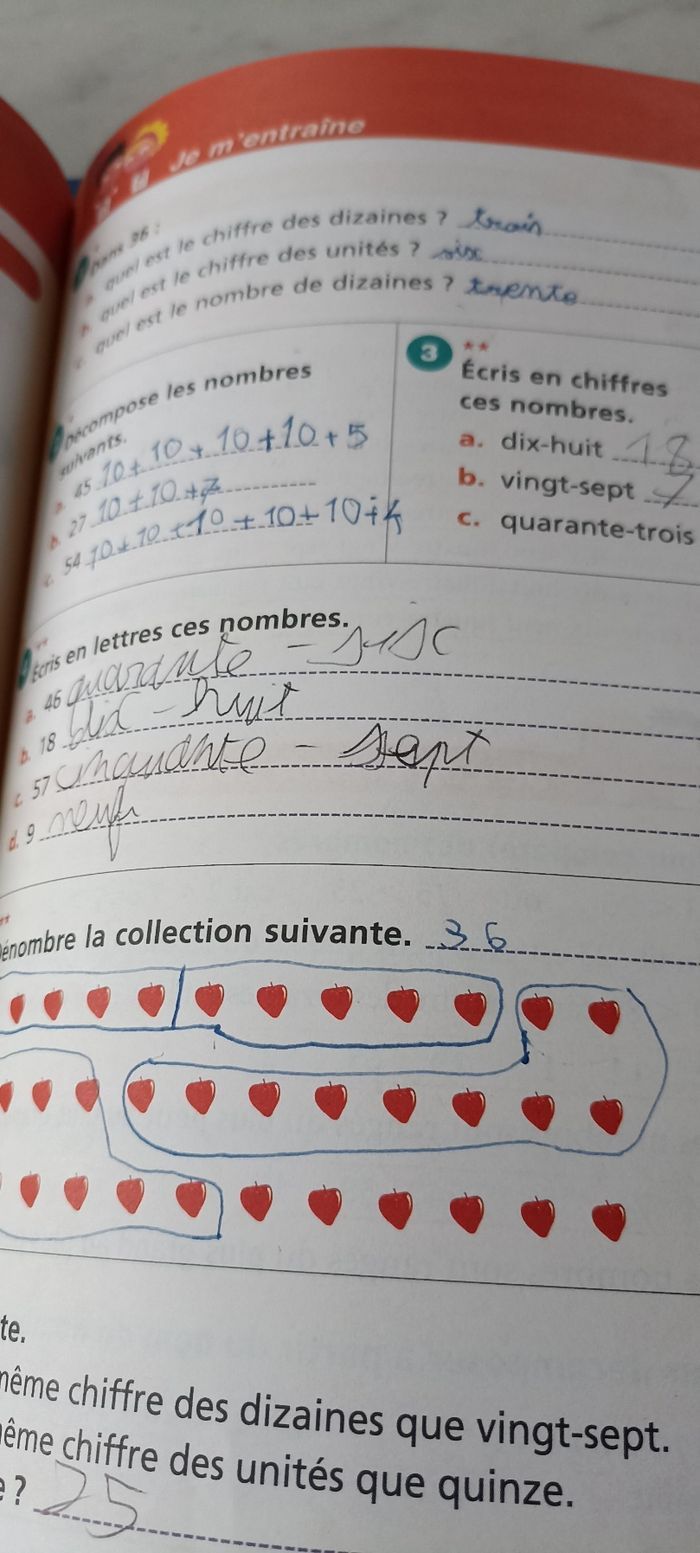 Je m'entraîne
Dans 36 :
quel est le chiffre des dizaines ? trois
quel est le chiffre des unités ? six
quel est le nombre de dizaines ? trente
Décompose les nombres
suivants.
a. 45 10 + 10 + 10 + 10 + 5
b. 27 10 + 10 + 7
c. 54 10 + 10 + 10 + 10 + 10 + 4
3 **
Écris en chiffres
ces nombres.
a. dix-huit 18
b. vingt-sept
c. quarante-trois
**
Écris en lettres ces nombres.
a. 46 quarante - sisc
b. 18 dix - huit
c. 57 cinquante - sept
d. 9 neuf
**
Dénombre la collection suivante. 36
te.
même chiffre des dizaines que vingt-sept.
même chiffre des unités que quinze.
e ? 25